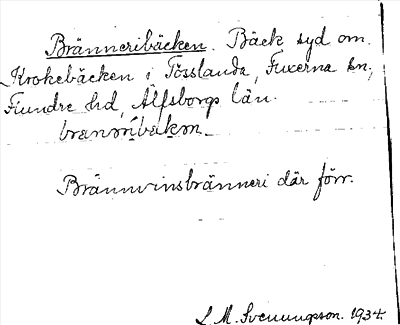 Bränneribäcken. Bäck syd om
Krokebäcken i Tösslanda, Fuxerna sn,
Flundre hd, Älfsborgs län.

Brännvinsbränneri där förr.
L. M. Svenungsson. 1934.